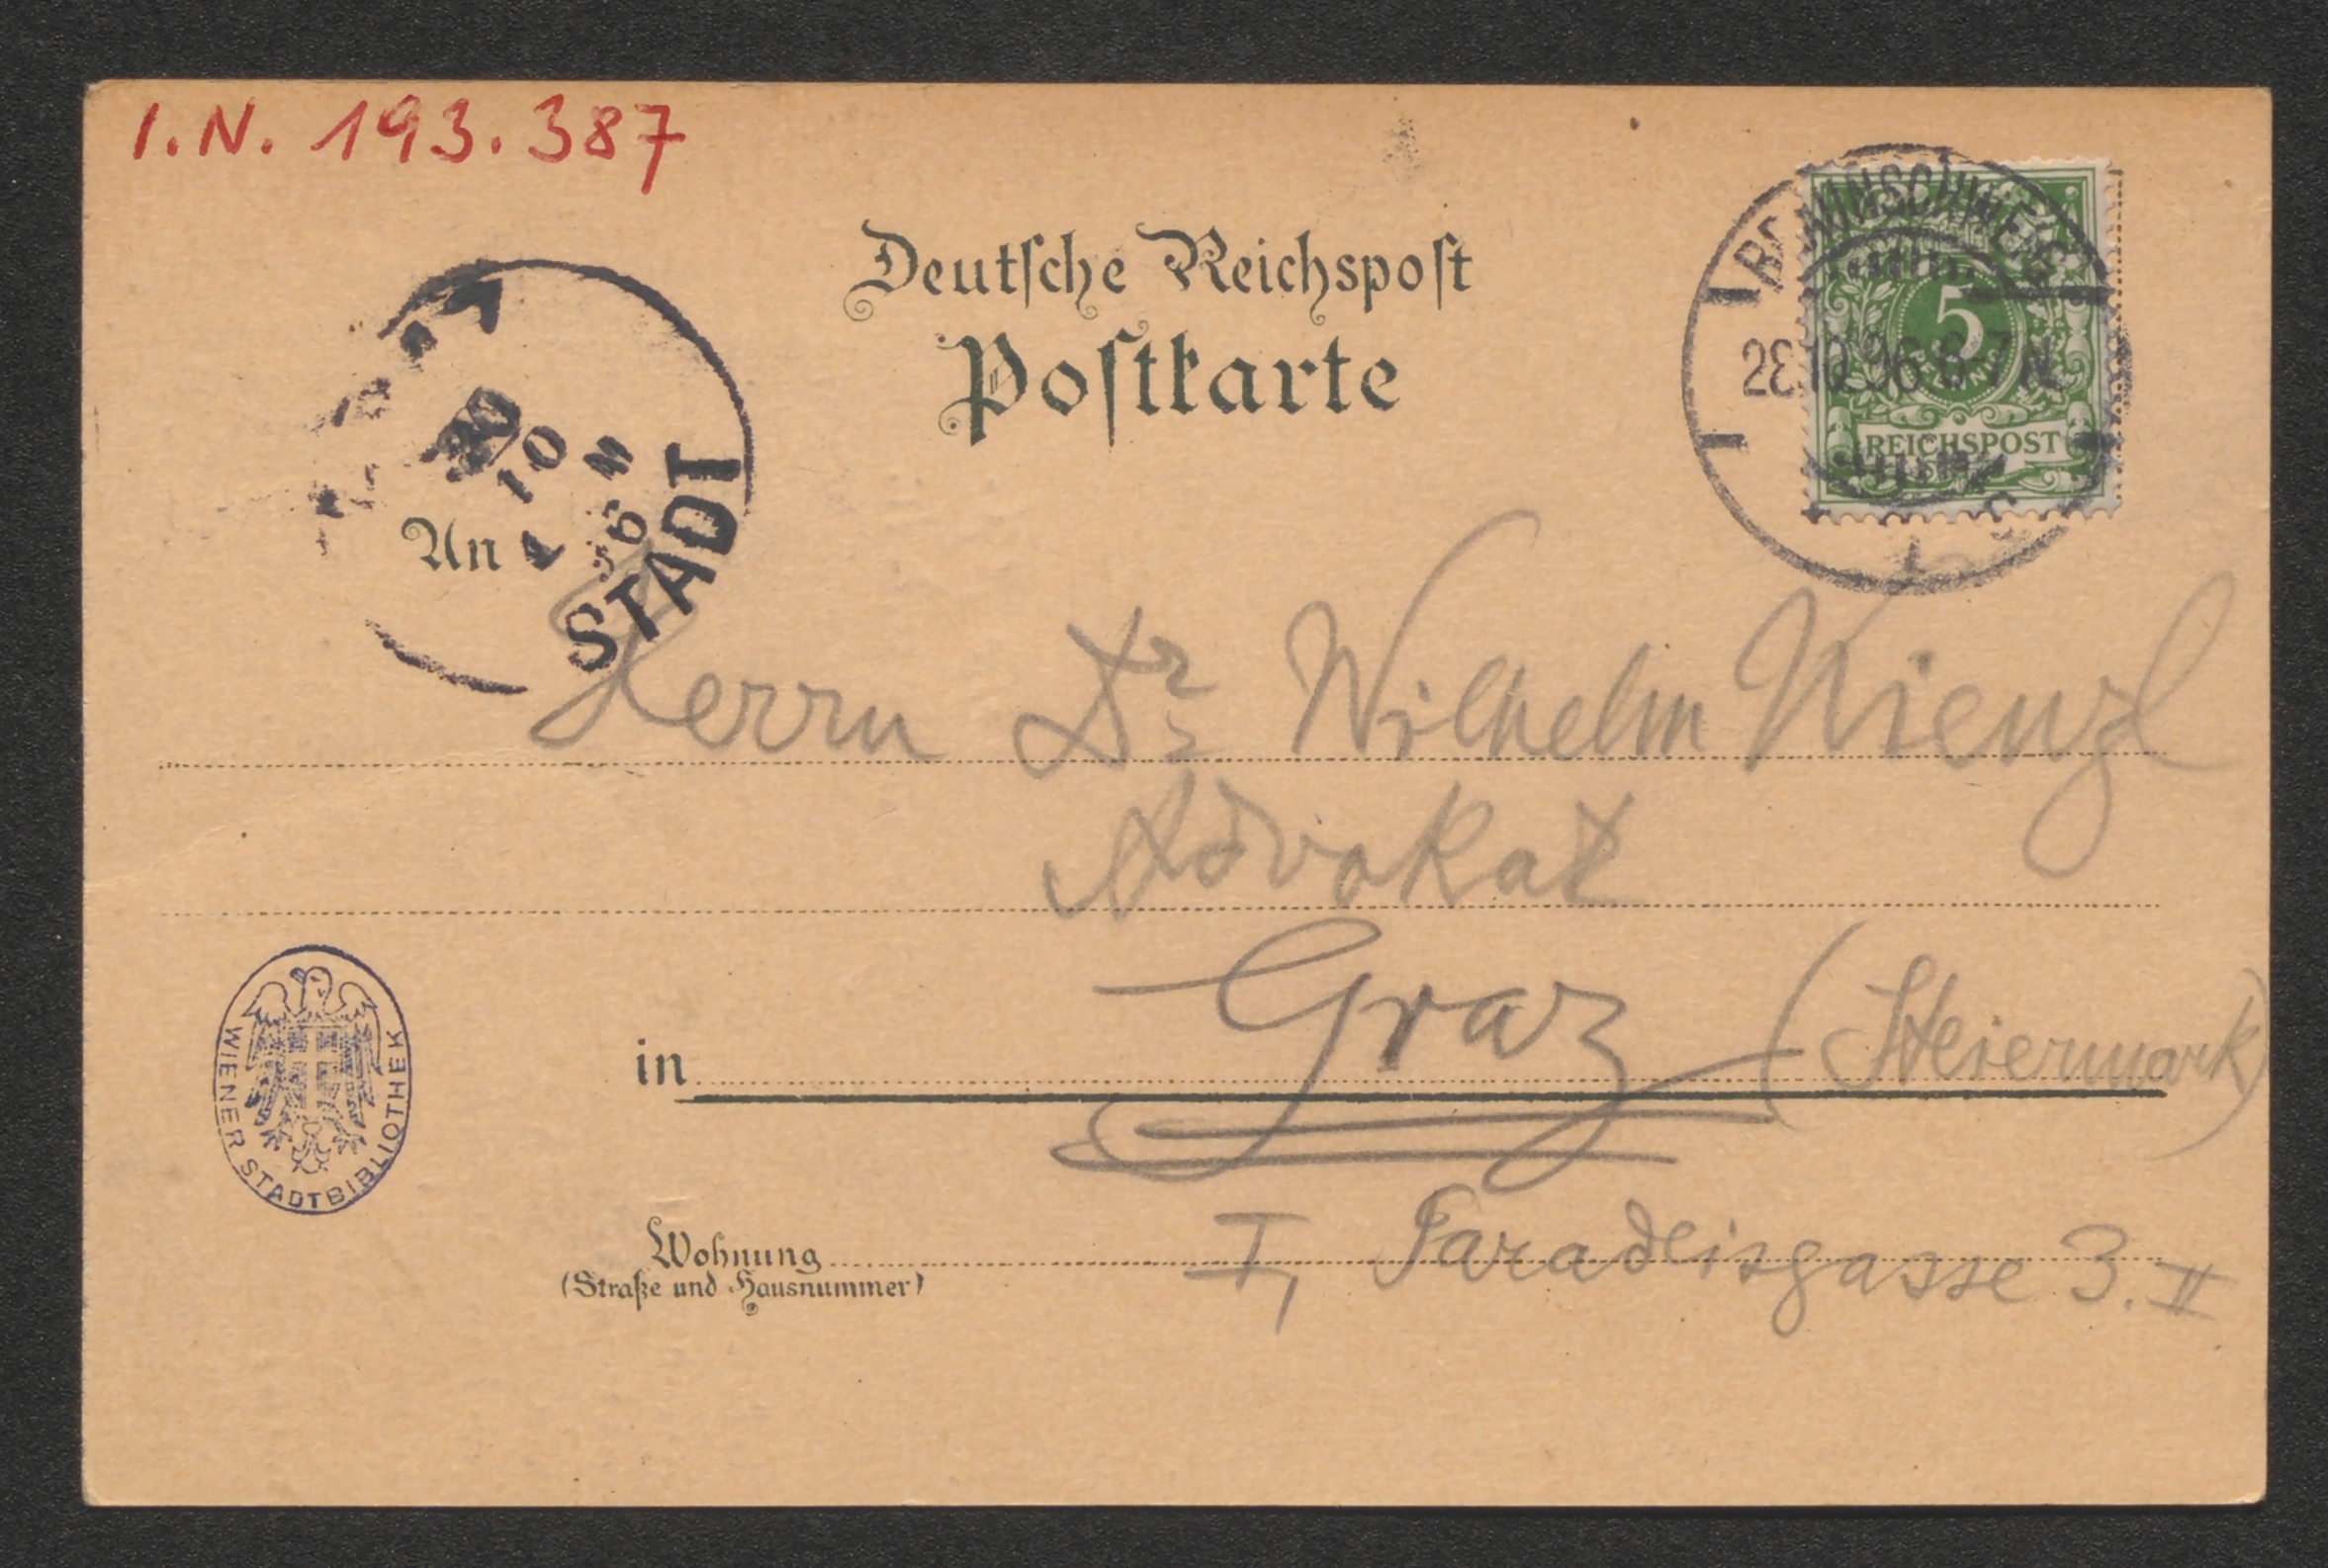 I.N. 193.387
Deutsche Reichspost
Postkarte
BRAUNSCHWEIG
28.10.96.6-7N.
5
PFENNIG
REICHSPOST
30
10
96
STADT
An
Herrn Dr. Wilhelm Kienzl
Advokat
in Graz (Steiermark)
WIENER STADTBIBLIOTHEK
Wohnung I, Paradeisgasse 3. II
(Straße und Hausnummer)